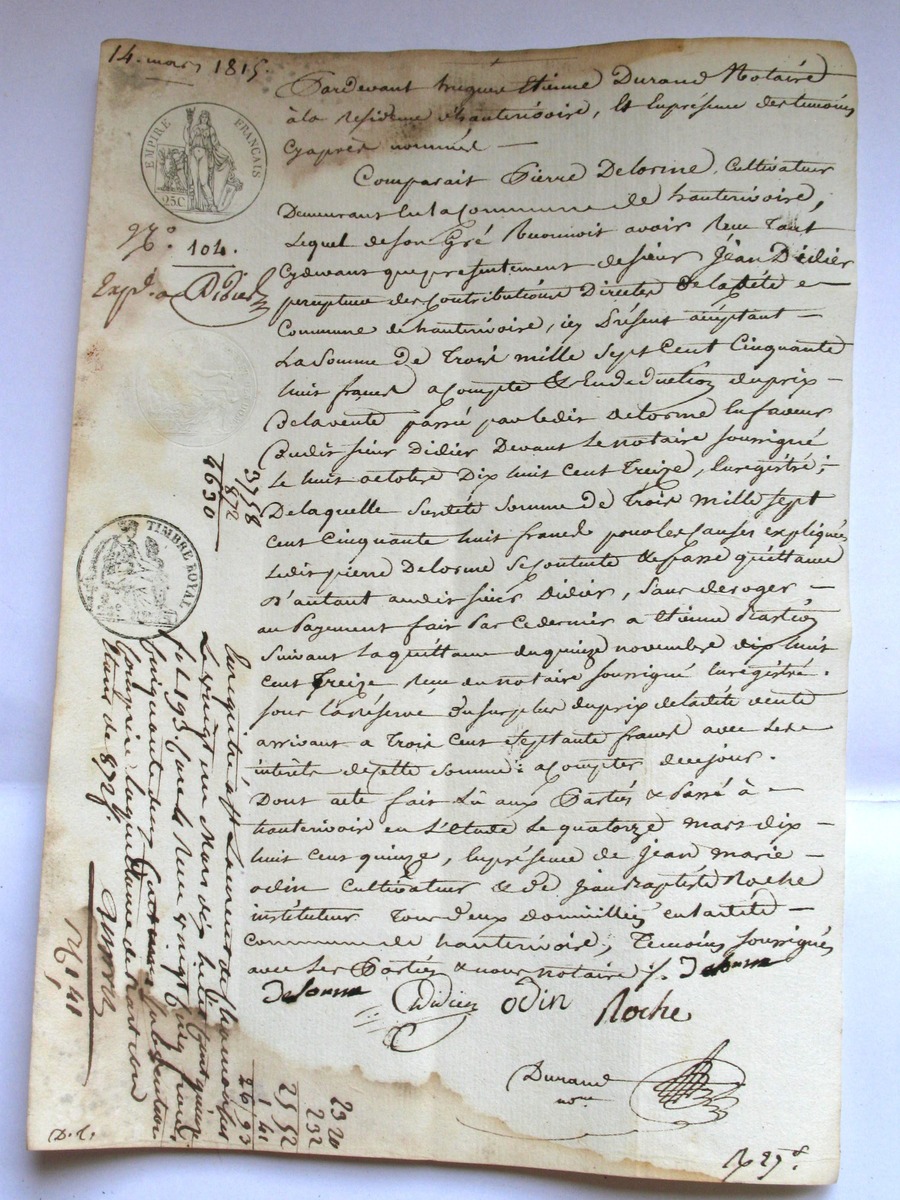 14. mars 1815.
EMPIRE FRANÇAIS
25C
N°. 104.
Expd. a Didier
Pardevant hugues Etienne Durand Notaire
à la residence d'hauterivoire, & En présence des temoins
Cyaprès nommés —
Comparait Pierre Delorme, Cultivateur
Demeurant En la Commune de hauterivoire,
Lequel de son Gré Reconnoit avoir Reçu Tant
Cydevant que présentement de sieur Jean Didier
percepteur des Contributions Directes de ladité
Commune de hauterivoire, icy Présent acceptant —
La Somme de Trois mille Sept Cent Cinquante
huit francs acompte & En deduction du prix —
De la vente passé par ledit delorme En faveur
Dudit sieur Didier Devant Le notaire soussigné
Le huit octobre Dix huit Cent Treize, Enregistré;
De laquelle susdité Somme de Trois mille sept
Cent Cinquante huit francs pour les causes expliquées
Ledit pierre Delorme Se contente & passe quittance
D'autant audit sieur Didier, Sans deroger —
au Payement fait Par Ce dernier a Etienne
Suivant La quittance du quinze novembre dix huit
Cent Treize Reçue du notaire soussigné Enregistré.
Sous la Réserve du surplus du prix de ladité vente
arrivant a Trois Cent Septante francs avec Les
intérêts de cette somme acompter de ce jour.
Dont acte fait Lû aux Partiés & Passé à
hauterivoire en L'étude Le quatorze mars dix
huit Cent quinze, En présence de Jean marie —
odin Cultivateur & de Jean Baptiste Roche
instituteur Tous deux domiciliés en ladité —
Commune de hauterivoire, Temoins soussignés
avec Les Partiés & nous notaire /. Delorme
Delorme Didier odin Roche
Durand
nore.
3758
872
4630
TIMBRE ROYAL
Enregistré à St Laurent de Chamousset
Le vingt un Mars dix huit Cent quinze
fol. 195. Reçu vingt Cinq francs
Cinquante deux Centimes Subvention
Comprise la quittance de
étant de 872f.
R 1 41
2320
232
2552
1 41
26 93
D. L.
R 27 s.